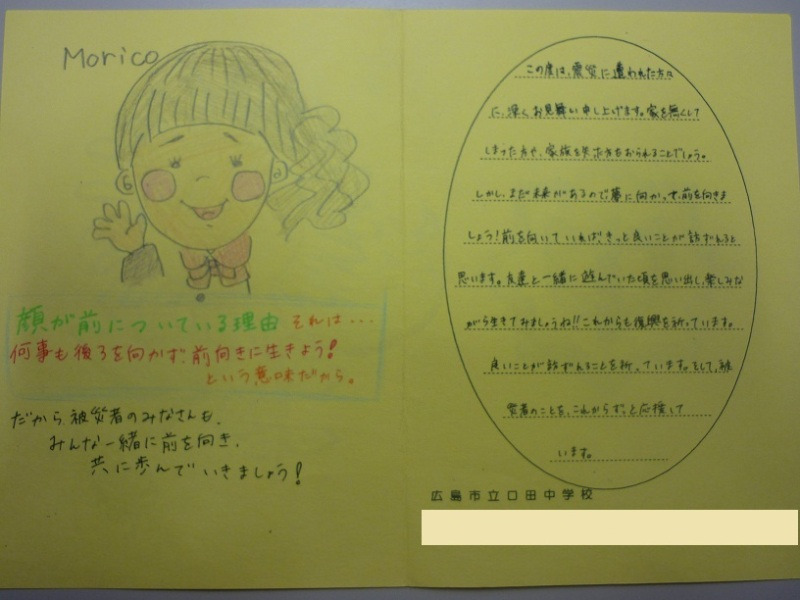 Morico
顔が前についている理由 それは・・・
何事も後ろを向かず、前向きに生きよう!
という意味だから。
だから、被災者のみなさんも、
みんな一緒に前を向き、
共に歩んでいきましょう!
この度は、震災に遭われた方々
に、深くお見舞い申し上げます。家を無くして
しまった方や、家族を失った方もおられることでしょう。
しかし、まだ未来があるので夢に向かって、前を向きま
しょう!前を向いていれば、きっと良いことが訪ずれると
思います。友達と一緒に遊んでいた頃を思い出し、楽しみな
がら生きてみましょうね!!これからも復興を祈っています。
良いことが訪ずれることを祈っています。そして、被
災者のことを、これからずっと応援して
います。
広島市立口田中学校